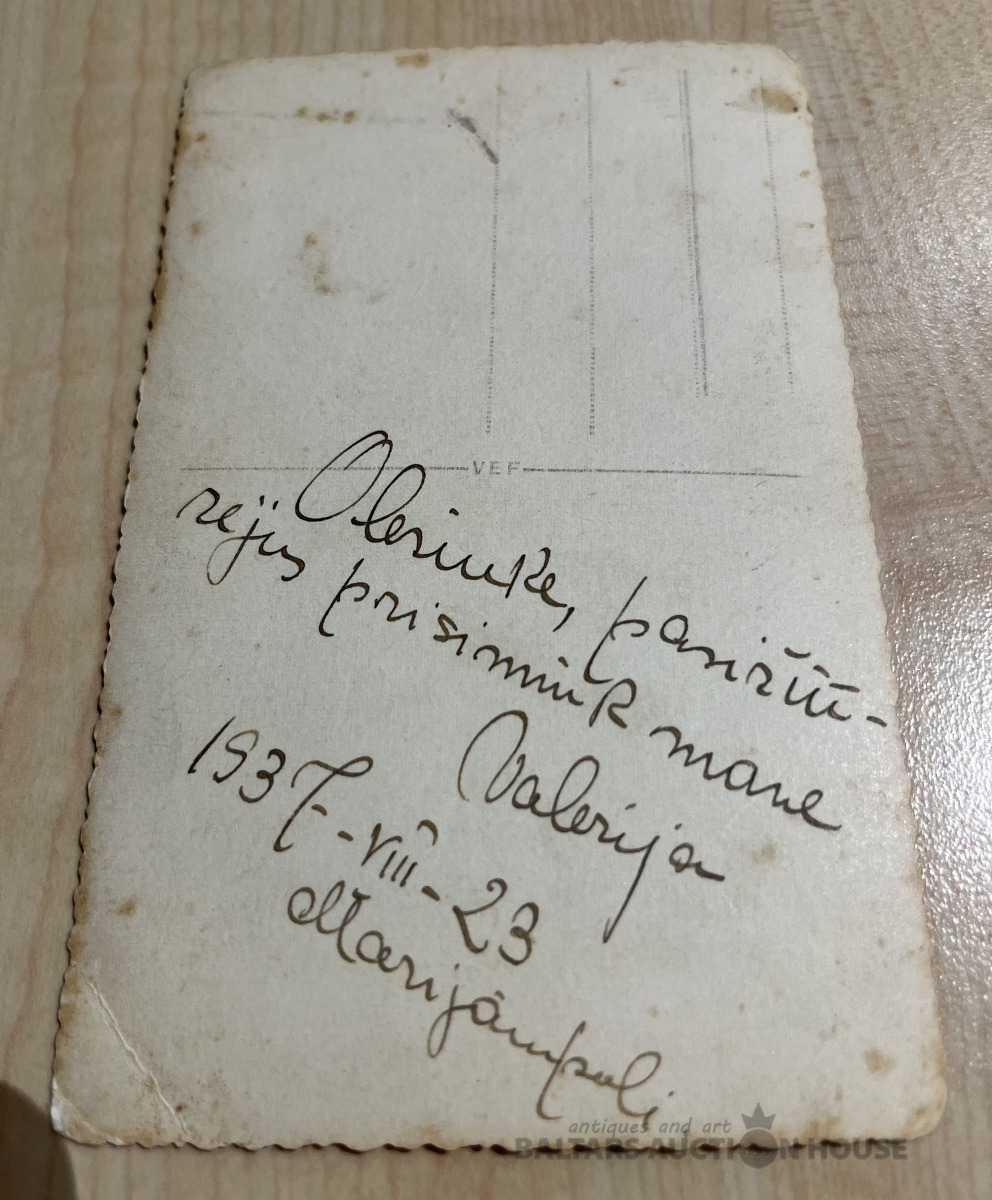 VEF
Olesiuke, pasižiū-
rėjus prisimink mane
Valerija
1937-VIII-23
Marijampolį
antiques and art
BALTARS AUCTION HOUSE